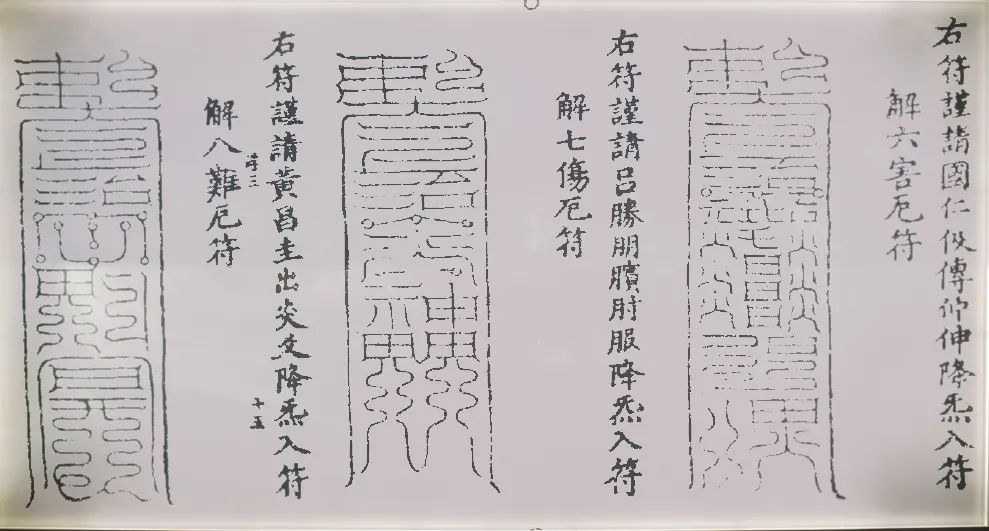 右符謹請國仁伋傅仰伸降炁入符
解六害厄符
右符謹請呂勝朋臏肘服降炁入符
解七傷厄符
右符謹請黃昌圭出炎炆降炁入符
解八難厄符